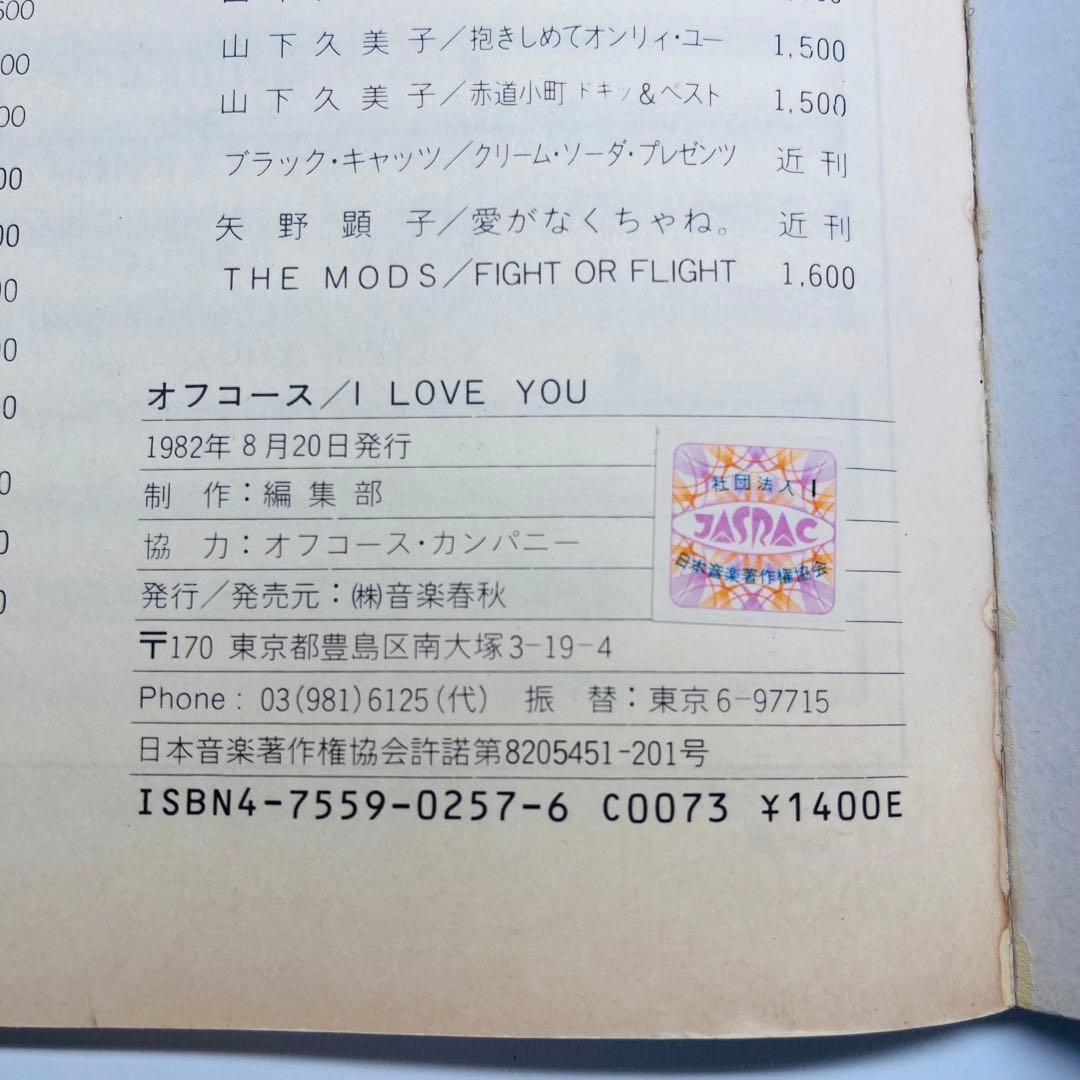 山下久美子/抱きしめてオンリィ・ユー 1,500
山下久美子/赤道小町 ドキッ&ベスト 1,500
ブラック・キャッツ/クリーム・ソーダ・プレゼンツ 近刊
矢野顕子/愛がなくちゃね。 近刊
THE MODS/FIGHT OR FLIGHT 1,600
オフコース/I LOVE YOU
1982年8月20日発行
制作:編集部
協力:オフコース・カンパニー
発行/発売元:㈱音楽春秋
〒170 東京都豊島区南大塚3-19-4
Phone: 03(981)6125(代) 振替:東京6-97715
日本音楽著作権協会許諾第8205451-201号
ISBN4-7559-0257-6 C0073 ¥1400E
社団法人
JASRAC
日本音楽著作権協会